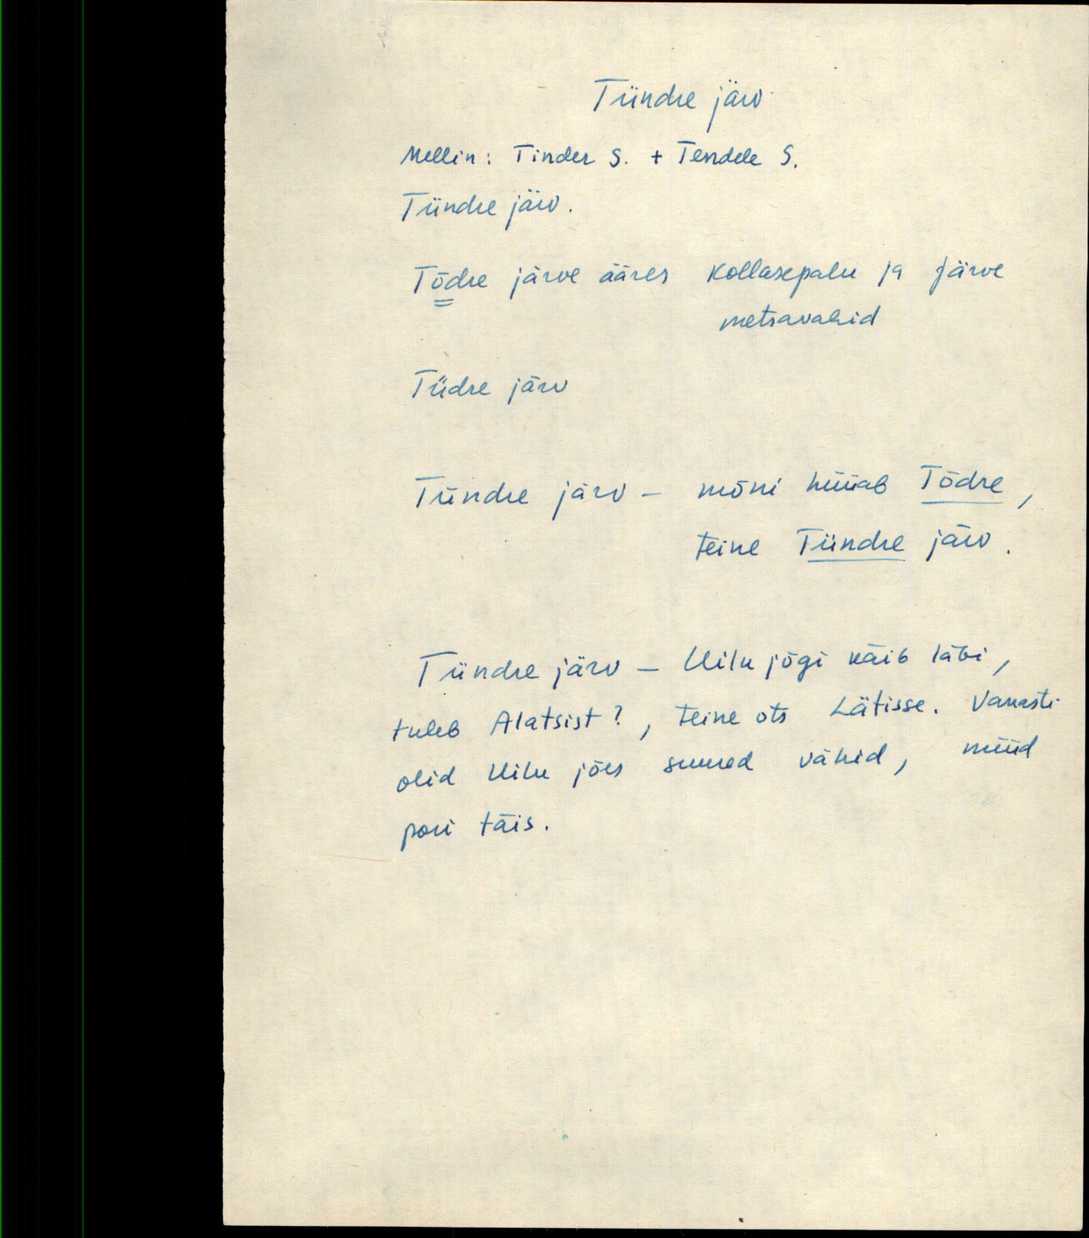 Tündre järv
Mellin: Tinder S. + Tendele S.
Tündre järv.
Tõdre järve ääres Kollasepalu ja Järve
metsavahid
Tüdre järv
Tündre järv – mõni hüüab Tõdre,
teine Tündre järv.
Tündre järv – Uilu jõgi käib läbi,
tuleb Alatsist?, teine ots Lätisse. Vanasti
olid Uilu jões suured vähid, nüüd
pori täis.